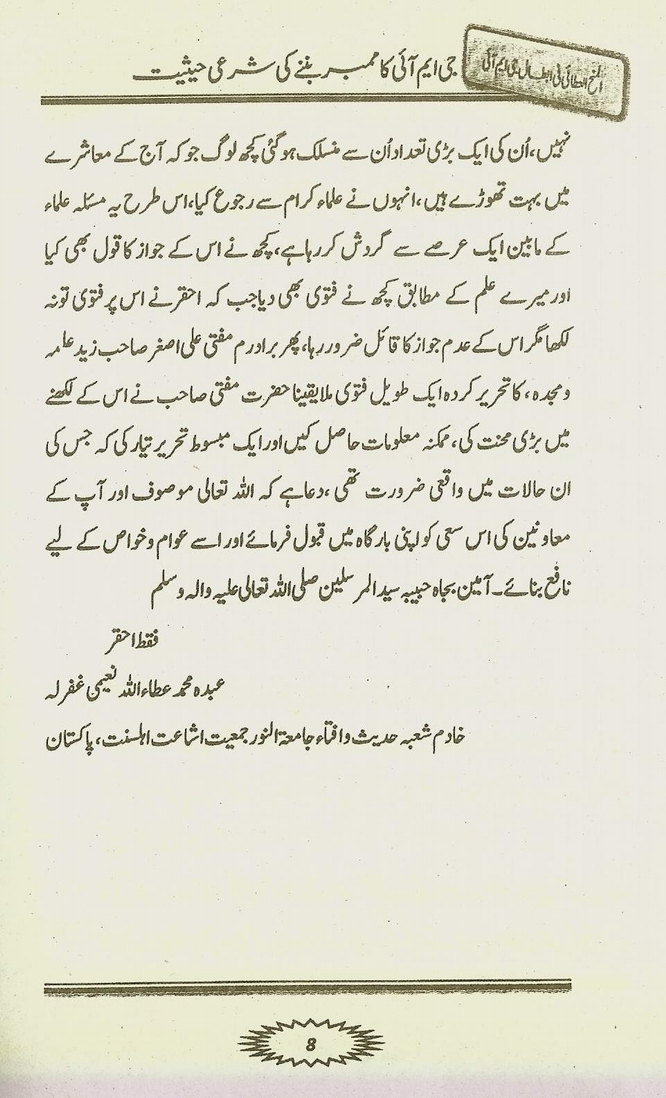 المنح العطائی فی ابطال جی ایم آئی
جی ایم آئی کا ممبر بننے کی شرعی حیثیت
نہیں، اُن کی ایک بڑی تعداد اُن سے منسلک ہوگئی کچھ لوگ جو کہ آج کے معاشرے
میں بہت تھوڑے ہیں، انہوں نے علماء کرام سے رجوع کیا، اس طرح یہ مسئلہ علماء
کے مابین ایک عرصے سے گردش کررہا ہے، کچھ نے اس کے جواز کا قول بھی کیا
اور میرے علم کے مطابق کچھ نے فتویٰ بھی دیا جب کہ احقر نے اس پر فتویٰ تو نہ
لکھا مگر اس کے عدم جواز کا قائل ضرور رہا، پھر برادرم مفتی علی اصغر صاحب زید علمہ
ومجدہ، کا تحریر کردہ ایک طویل فتویٰ ملا یقینا حضرت مفتی صاحب نے اس کے لکھنے
میں بڑی محنت کی، ممکنہ معلومات حاصل کیں اور ایک مبسوط تحریر تیار کی کہ جس کی
ان حالات میں واقعی ضرورت تھی، دعا ہے کہ اللہ تعالی موصوف اور آپ کے
معاونین کی اس سعی کو اپنی بارگاہ میں قبول فرمائے اور اسے عوام وخواص کے لیے
نافع بنائے۔ آمین بجاہ حبیبہ سید المرسلین صلی اللہ تعالی علیہ والہ وسلم
فقط احقر
عبدہ محمد عطاء اللہ نعیمی غفرلہ
خادم شعبہ حدیث وافتاء جامعۃ النور جمعیت اشاعت اہلسنت، پاکستان
8